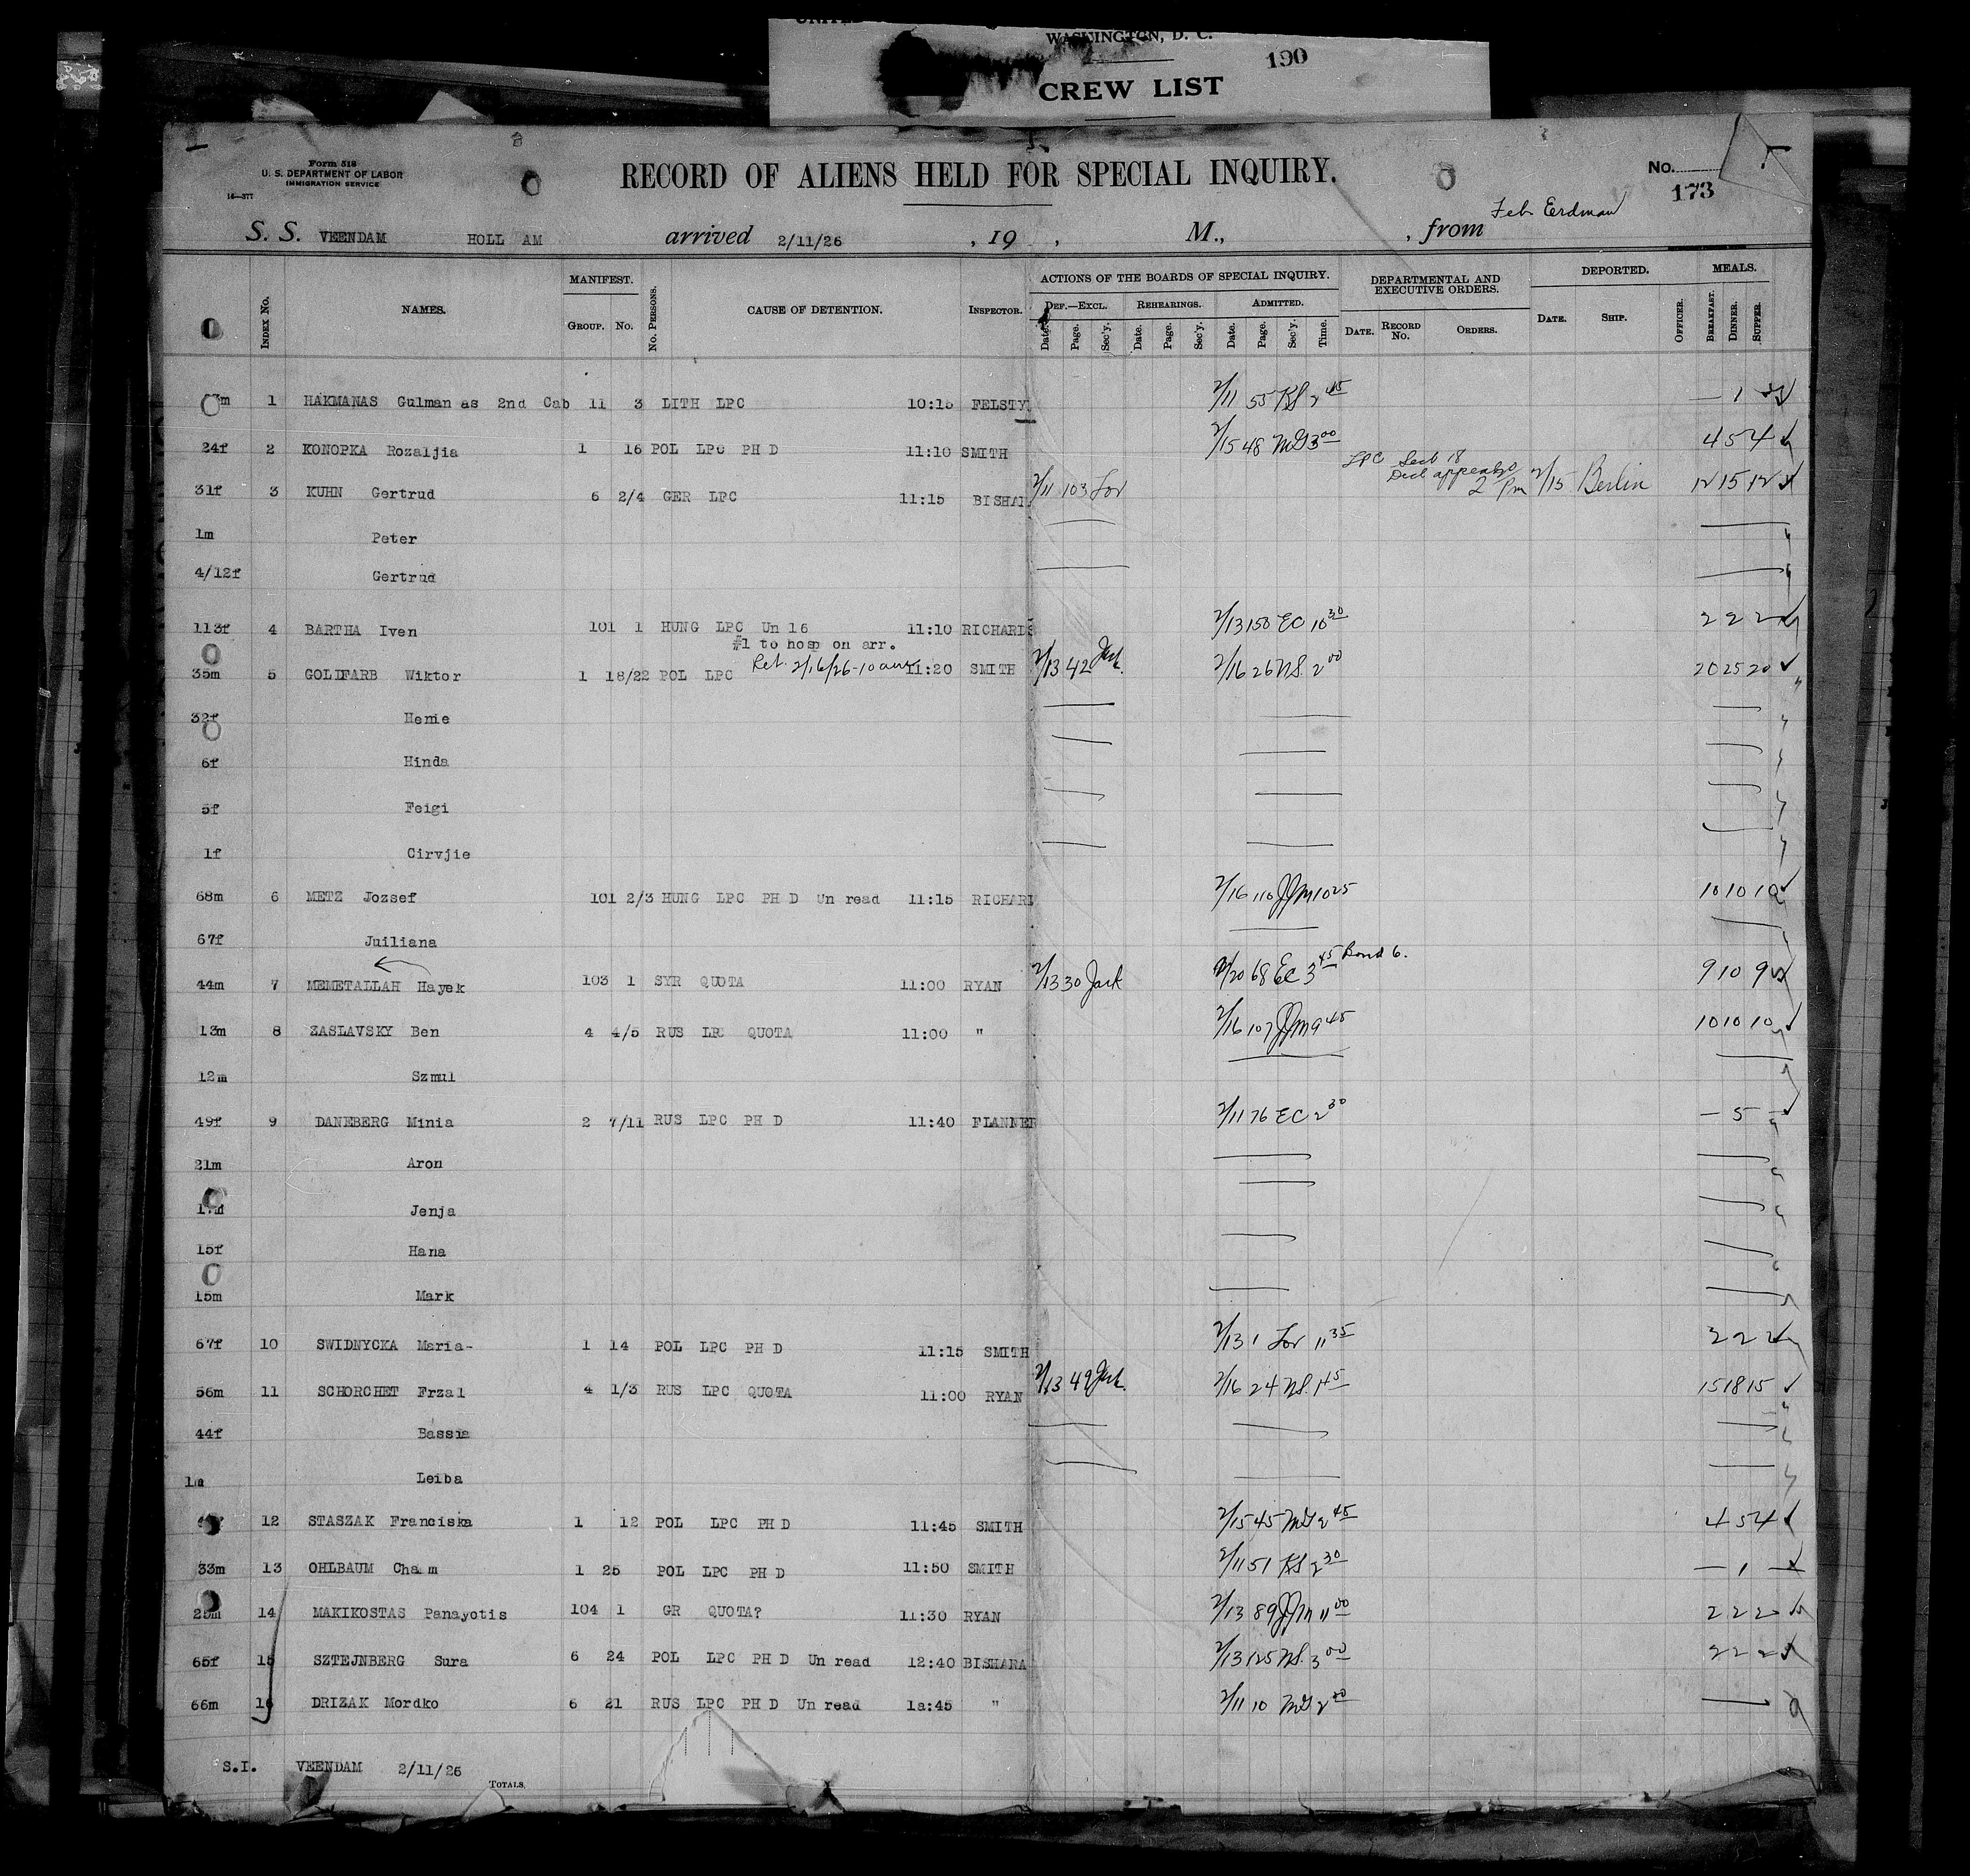 WASHINGTON, D. C.
190
CREW LIST
Form 518
U. S. DEPARTMENT OF LABOR
IMMIGRATION SERVICE
16—377
RECORD OF ALIENS HELD FOR SPECIAL INQUIRY.
No.
173
S. S. VEENDAM HOLL AM arrived 2/11/26 , 19 , M., , from Feb Erdman
INDEX No. NAMES. MANIFEST. GROUP. No. No. PERSONS. CAUSE OF DETENTION. INSPECTOR. ACTIONS OF THE BOARDS OF SPECIAL INQUIRY. DEF.—EXCL. Date. Page. Sec'y. REHEARINGS. Date. Page. Sec'y. ADMITTED. Date. Page. Sec'y. Time. DEPARTMENTAL AND EXECUTIVE ORDERS. DATE. RECORD No. ORDERS. DEPORTED. DATE. SHIP. OFFICER. MEALS. BREAKFAST. DINNER. SUPPER.
1 HAKMANAS Gulman as 2nd Cab 11 3 LITH LPC 10:15 FELSTY 2/11 55 KS 2 45 — 1
24f 2 KONOPKA Rozaljia 1 16 POL LPC PH D 11:10 SMITH 2/15 48 MG 3 00 4 5 4
LPC Sect 18
Decl appealed
31f 3 KUHN Gertrud 6 2/4 GER LPC 11:15 BISHAR 2/11 103 Lov 2 Pm 2/15 Berlin 12 15 12
1m Peter
4/12f Gertrud
113f 4 BARTHA Iven 101 1 HUNG LPC Un 16 11:10 RICHARDS 2/13 150 EC 10 30 2 2 2
#1 to hosp on arr.
Ret. 2/16/26-10 am
35m 5 GOLDFARB Wiktor 1 18/22 POL LPC 11:20 SMITH 2/13 42 Jack. 2/16 26 NS. 2 00 20 25 20
32f Henie
6f Hinda
5f Feigi
1f Cirvjie
68m 6 METZ Jozsef 101 2/3 HUNG LPC PH D Un read 11:15 RICHARD 2/16 110 JJM 10 25 10 10 10
67f Juiliana
44m 7 MEMETALLAH Hayek 103 1 SYR QUOTA 11:00 RYAN 2/13 30 Jack 2/20 68 EC 3 45 Bond 6. 9 10 9
13m 8 ZASLAVSKY Ben 4 4/5 RUS LPC QUOTA 11:00 " 2/16 107 JJM 9 45 10 10 10
12m Szmul
49f 9 DANEBERG Minia 2 7/11 RUS LPC PH D 11:40 FLANNER 2/11 76 EC 2 30 — 5 —
21m Aron
Jenja
15f Hana
15m Mark
67f 10 SWIDNYCKA Maria- 1 14 POL LPC PH D 11:15 SMITH 2/13 1 Lov 11 35 2 2 2
56m 11 SCHORCHET Frzal 4 1/3 RUS LPC QUOTA 11:00 RYAN 2/13 49 Jack. 2/16 24 NS. 1 45 15 18 15
44f Bassia
1m Leiba
12 STASZAK Franciska 1 12 POL LPC PH D 11:45 SMITH 2/15 45 MG 2 45 4 5 4
33m 13 OHLBAUM Cham 1 25 POL LPC PH D 11:50 SMITH 2/11 51 KS 2 30 — 1 —
14 MAKIKOSTAS Panayotis 104 1 GR QUOTA? 11:30 RYAN 2/13 89 JJM 11 00 2 2 2
65f 15 SZTEJNBERG Sura 6 24 POL LPC PH D Un read 12:40 BISHARA 2/13 125 NS. 3 00 2 2 2
66m 16 DRIZAK Mordko 6 21 RUS LPC PH D Un read 1a:45 " 2/11 10 MG 2 00
S.I. VEENDAM 2/11/26
TOTALS.